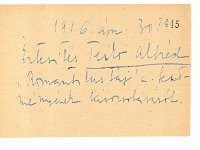 1916. ám. 30 7445
Értesítés Teito Alfréd
"Romantikus táj" c. fest-
ményének kisorsolásáról.